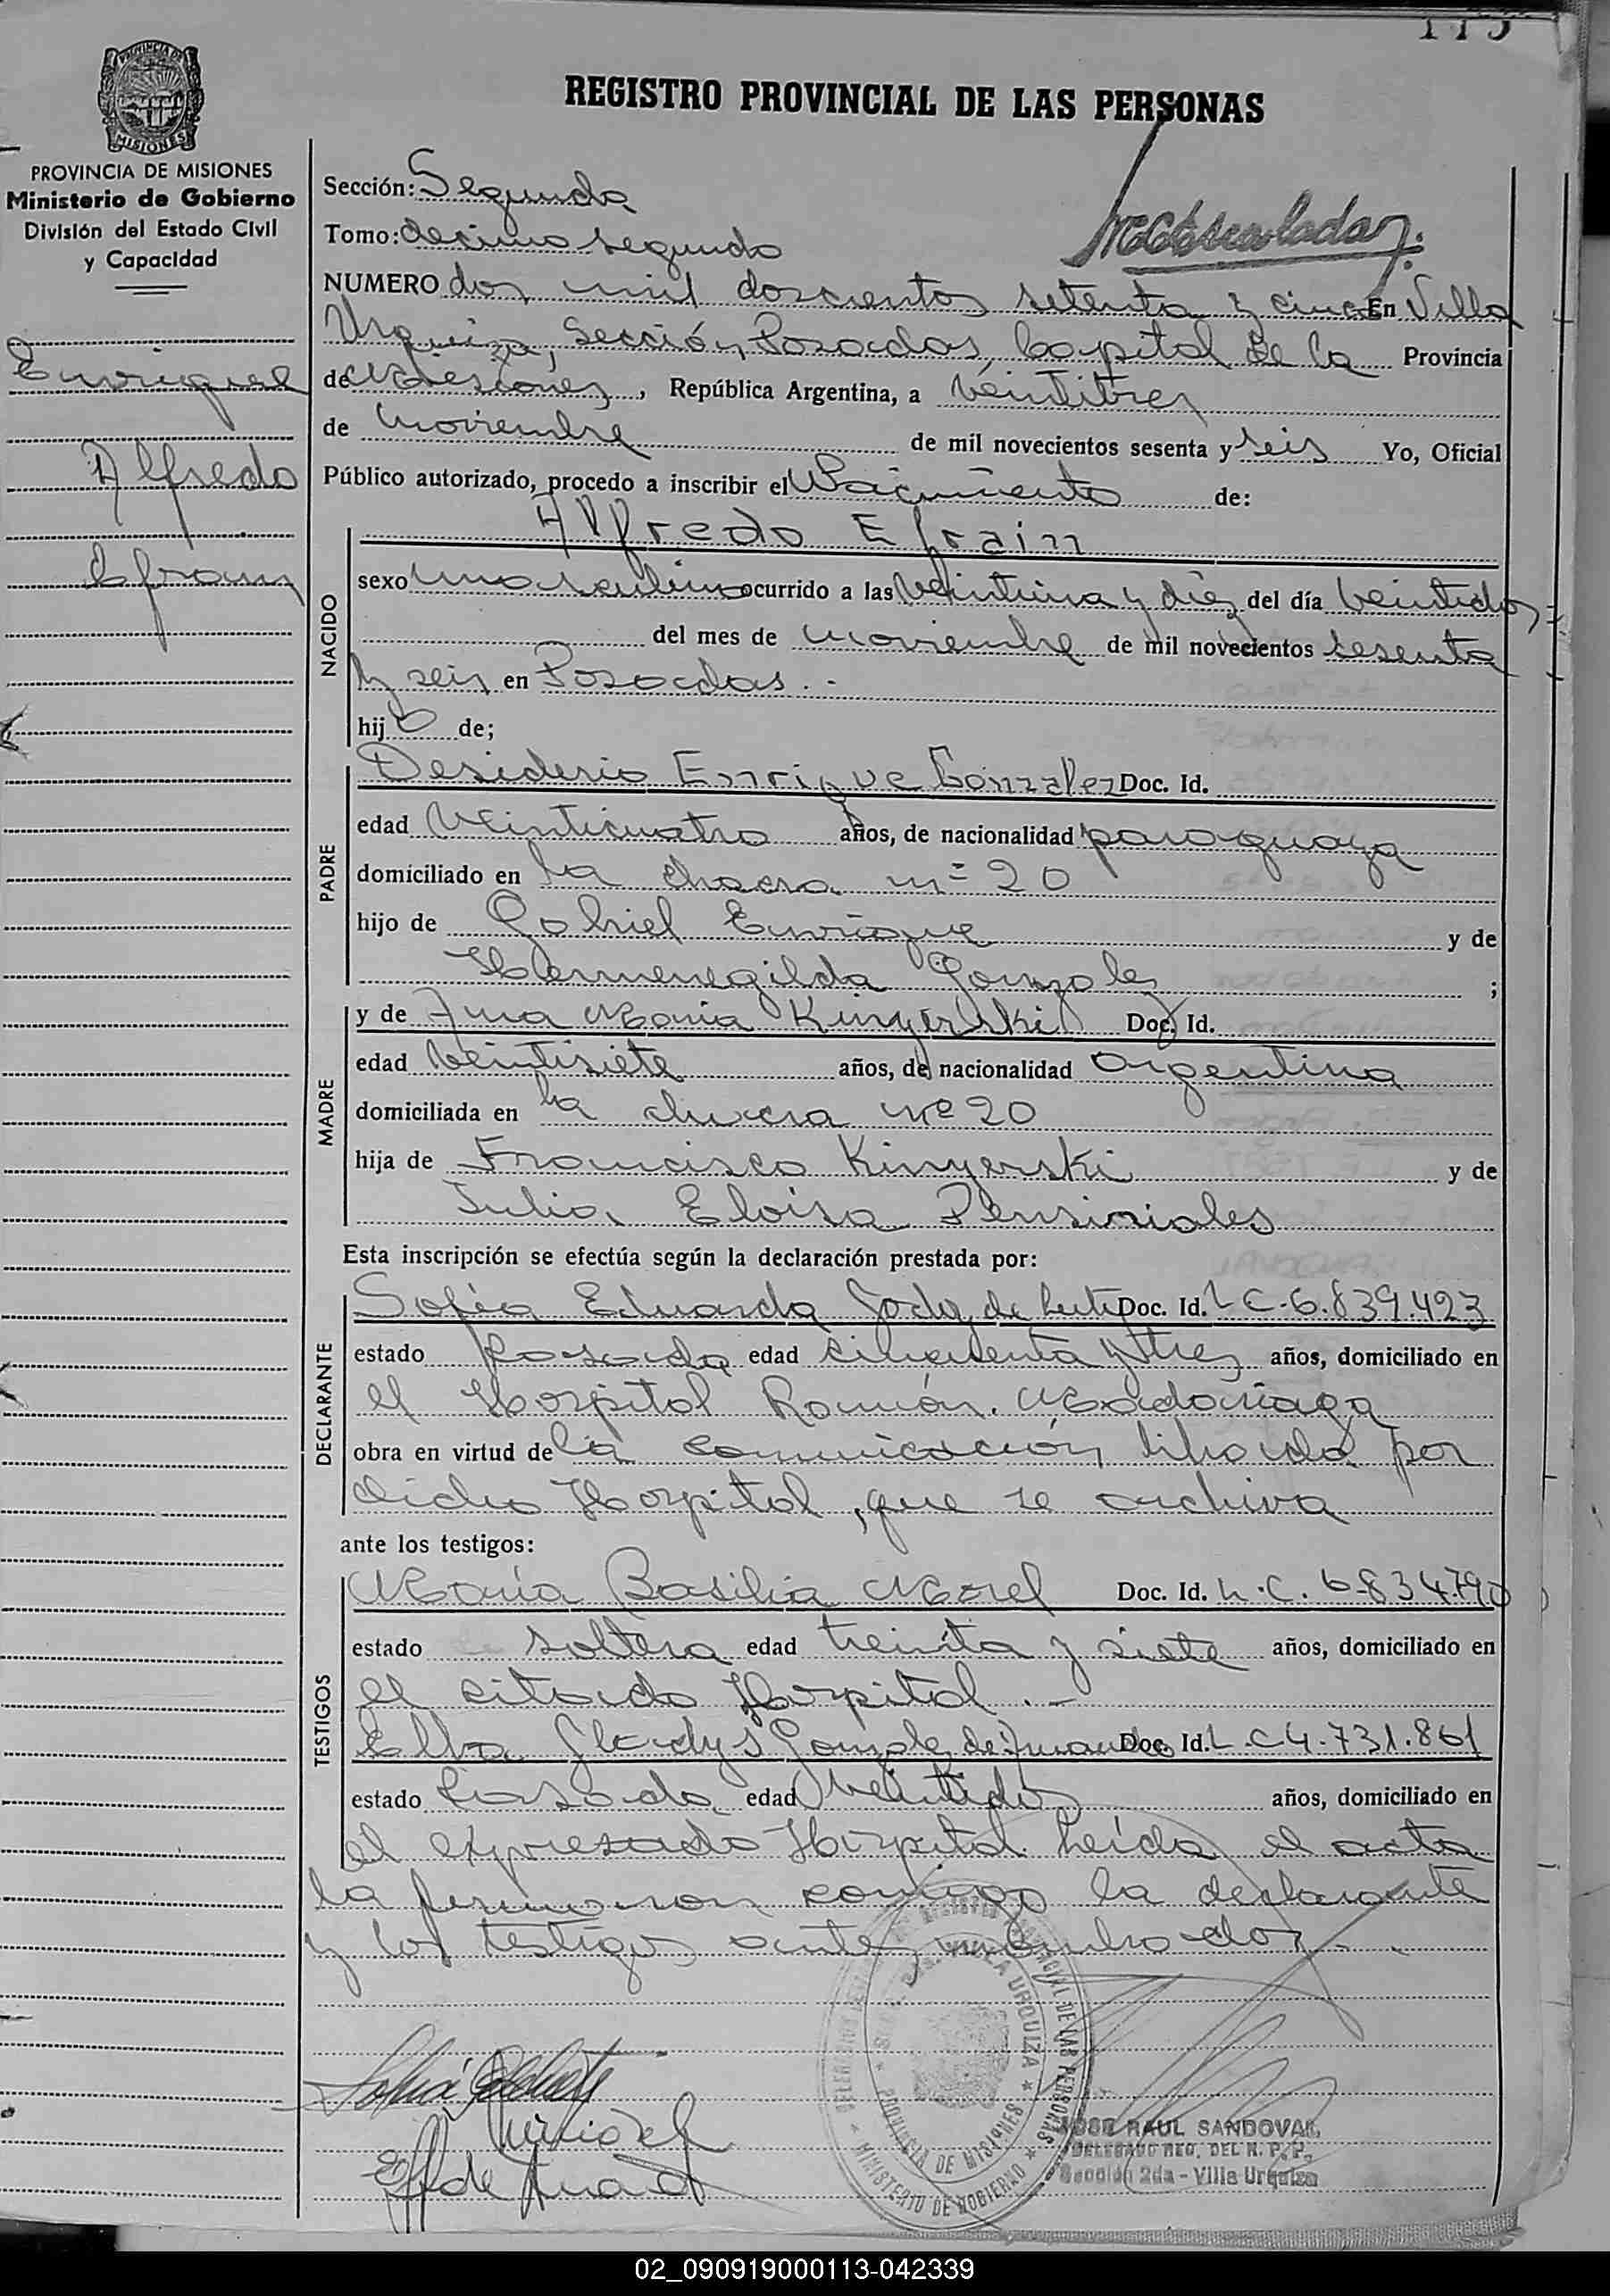 115
PROVINCIA DE MISIONES
MISIONES
PROVINCIA DE MISIONES
Ministerio de Gobierno
División del Estado Civil
y Capacidad
Enrique
Alfredo
Efrain
REGISTRO PROVINCIAL DE LAS PERSONAS
Sección: Segunda
Tomo: decimo segundo
NUMERO dos mil doscientos setenta y cinco En Villa
Urquiza, Sección Posadas, Capital de la Provincia
de Misiones, República Argentina, a Veintitres
de noviembre de mil novecientos sesenta y seis Yo, Oficial
Público autorizado, procedo a inscribir el Nacimiento de:
Alfredo Efrain
NACIDO
sexo masculino ocurrido a las veintiuna y diez del día veintidos
del mes de noviembre de mil novecientos sesenta
y seis en Posadas.-
hijo de;
PADRE
Desiderio Enrique Gonzalez Doc. Id.
edad Veinticuatro años, de nacionalidad paraguaya
domiciliado en la chacra nº 20
hijo de Gabriel Enrique y de
Hermenegilda Gonzalez ;
MADRE
y de Ana Maria Kinyerski Doc. Id.
edad Veintisiete años, de nacionalidad Argentina
domiciliada en la chacra Nº 20
hija de Francisco Kinyerski y de
Julia Eloisa
Esta inscripción se efectúa según la declaración prestada por:
DECLARANTE
Sofia Eduarda Godoy de Doc. Id. L C. 6.839.423
estado Casada edad cincuenta y tres años, domiciliado en
el Hospital Ramón Madariaga
obra en virtud de la comunicación librada por
dicho Hospital, que se archiva
ante los testigos:
TESTIGOS
María Basilia Morel Doc. Id. L.C. 6.834.790
estado soltera edad treinta y siete años, domiciliado en
el citado Hospital.-
Elba Gladys Gonzalez de Doc. Id. L.C 4.731.861
estado Casada edad veintidos años, domiciliado en
el expresado Hospital. Leída el acta
la firmaron conmigo la declarante
y los testigos antes nombrados.-
REGISTRO PROVINCIAL DE LAS PERSONAS
VILLA URQUIZA
PROVINCIA DE MISIONES
MINISTERIO DE GOBIERNO
JOSE RAUL SANDOVAL
DELEGADO REG. DEL R. P. P.
Sección 2da - Villa Urquiza
02_090919000113-042339